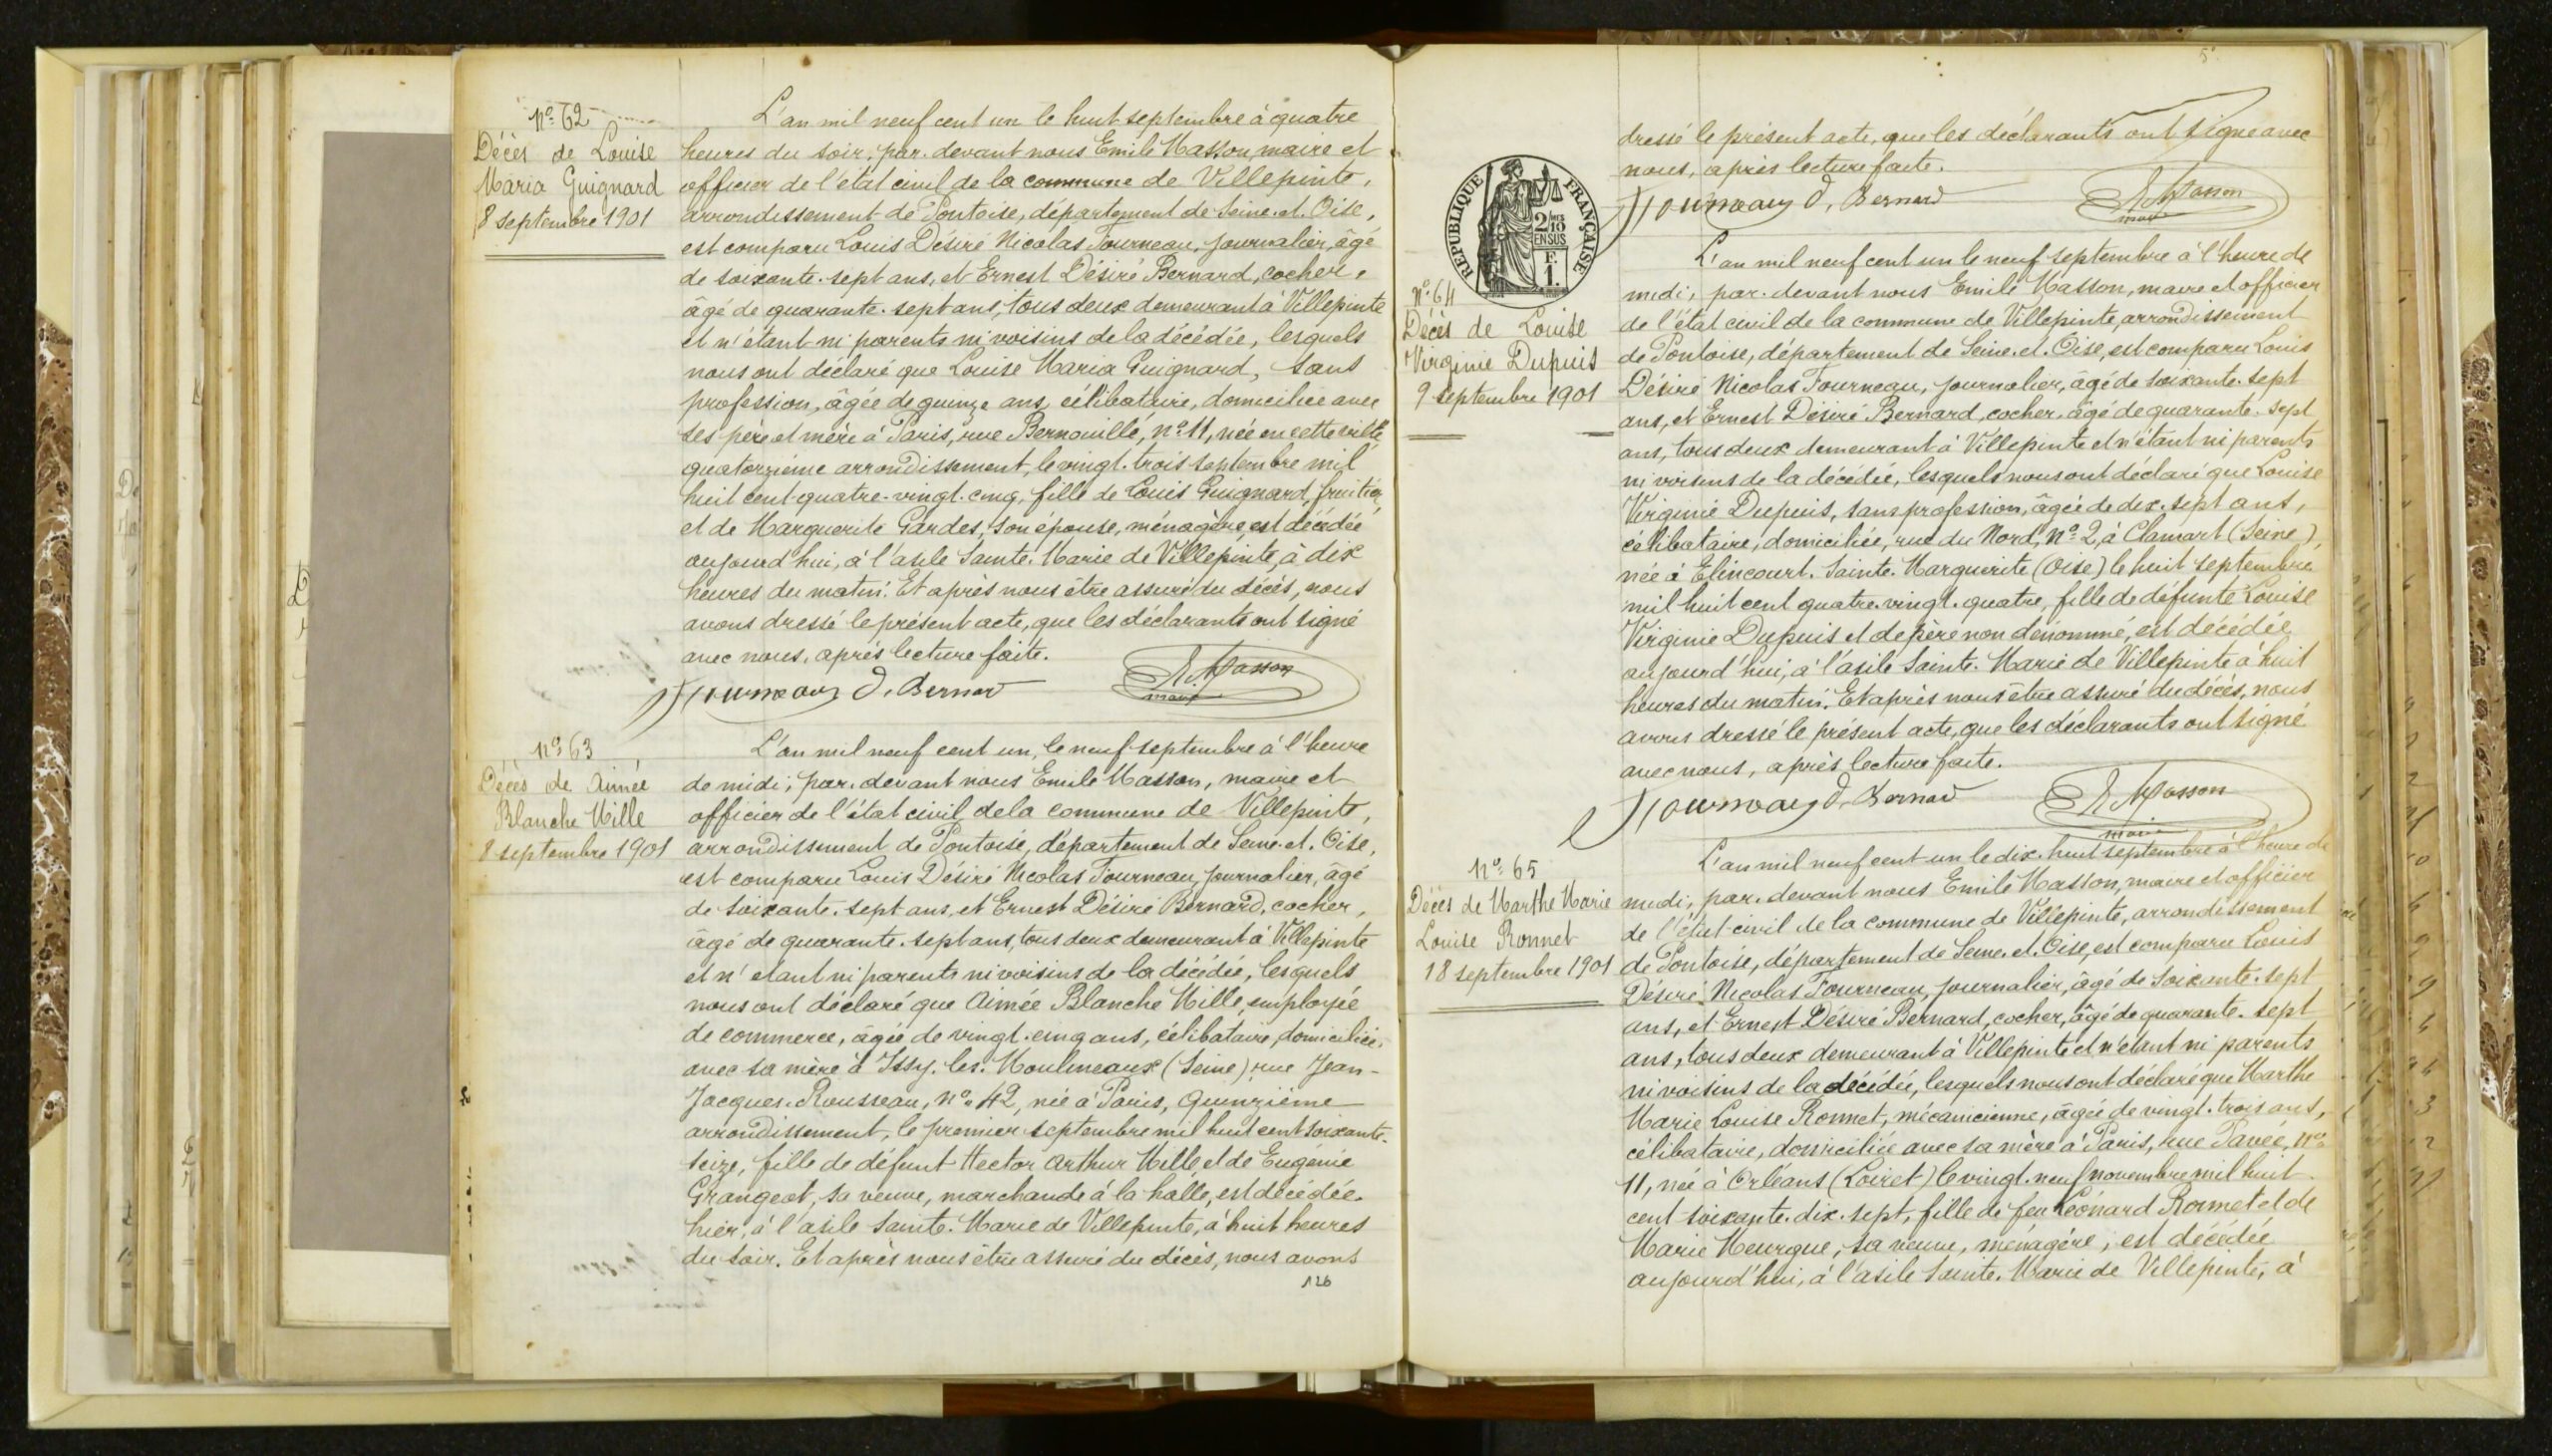 Nº 62
Décès de Louise
Maria Guignard
8 septembre 1901
L'an mil neuf cent un le huit septembre à quatre
heures du soir, par-devant nous Emile Masson, maire et
officier de l'état civil de la commune de Villepinte,
arrondissement de Pontoise, département de Seine-et-Oise,
est comparu Louis Désiré Nicolas Fourneau, journalier, âgé
de soixante-sept ans, et Ernest Désiré Bernard, cocher,
âgé de quarante-sept ans, tous deux demeurant à Villepinte
et n'étant ni parents ni voisins de la décédée, lesquels
nous ont déclaré que Louise Maria Guignard, sans
profession, âgée de quinze ans, célibataire, domiciliée avec
ses père et mère à Paris, rue Bernouille, nº 11, née en cette ville,
quatorzième arrondissement, le vingt-trois septembre mil
huit cent quatre-vingt-cinq, fille de Louis Guignard, fruitier,
et de Marguerite Gardes, son épouse, ménagère, est décédée
aujourd'hui, à l'asile Sainte-Marie de Villepinte, à dix
heures du matin. Et après nous être assuré du décès, nous
avons dressé le présent acte, que les déclarants ont signé
avec nous, après lecture faite.
Fourneau D. Bernard E. Masson
maire
nº 63
Décès de Aimée
Blanche Mille
8 septembre 1901
L'an mil neuf cent un, le neuf septembre à l'heure
de midi, par-devant nous Emile Masson, maire et
officier de l'état civil de la commune de Villepinte,
arrondissement de Pontoise, département de Seine-et-Oise,
est comparu Louis Désiré Nicolas Fourneau, journalier, âgé
de soixante-sept ans, et Ernest Désiré Bernard, cocher,
âgé de quarante-sept ans, tous deux demeurant à Villepinte
et n'étant ni parents ni voisins de la décédée, lesquels
nous ont déclaré que Aimée Blanche Mille, employée
de commerce, âgée de vingt-cinq ans, célibataire, domiciliée
avec sa mère à Issy-les-Moulineaux (Seine) rue Jean-
Jacques-Rousseau, nº 42, née à Paris, quinzième
arrondissement, le premier septembre mil huit cent soixante-
seize, fille de défunt Hector Arthur Mille, et de Eugénie
Grangeot, sa veuve, marchande à la halle, est décédée
hier, à l'asile Sainte-Marie de Villepinte, à huit heures
du soir. Et après nous être assuré du décès, nous avons
126
5º
dressé le présent acte, que les déclarants ont signé avec
nous, après lecture faite.
Fourneau D. Bernard E. Masson
maire
RÉPUBLIQUE FRANÇAISE
2/10 EN SUS
F. 1.
Nº 64
Décès de Louise
Virginie Dupuis
9 septembre 1901
L'an mil neuf cent un le neuf septembre à l'heure de
midi, par-devant nous Emile Masson, maire et officier
de l'état civil de la commune de Villepinte, arrondissement
de Pontoise, département de Seine-et-Oise, est comparu Louis
Désiré Nicolas Fourneau, journalier, âgé de soixante-sept
ans, et Ernest Désiré Bernard, cocher, âgé de quarante-sept
ans, tous deux demeurant à Villepinte et n'étant ni parents
ni voisins de la décédée, lesquels nous ont déclaré que Louise
Virginie Dupuis, sans profession, âgée de dix-sept ans,
célibataire, domiciliée, rue du Nord, nº 2, à Clamart (Seine),
née à Elincourt-Sainte-Marguerite (Oise) le huit septembre
mil huit cent quatre-vingt-quatre, fille de défunte Louise
Virginie Dupuis et de père non dénommé, est décédée
aujourd'hui, à l'asile Sainte-Marie de Villepinte à huit
heures du matin. Et après nous être assuré du décès, nous
avons dressé le présent acte, que les déclarants ont signé
avec nous, après lecture faite.
Fourneau D. Bernard E. Masson
maire
nº 65
Décès de Marthe Marie
Louise Ronnet
18 septembre 1901
L'an mil neuf cent un le dix-huit septembre à l'heure de
midi, par-devant nous Emile Masson, maire et officier
de l'état civil de la commune de Villepinte, arrondissement
de Pontoise, département de Seine-et-Oise, est comparu Louis
Désiré Nicolas Fourneau, journalier, âgé de soixante-sept
ans, et Ernest Désiré Bernard, cocher, âgé de quarante-sept
ans, tous deux demeurant à Villepinte et n'étant ni parents
ni voisins de la décédée, lesquels nous ont déclaré que Marthe
Marie Louise Ronnet, mécanicienne, âgée de vingt-trois ans,
célibataire, domiciliée avec sa mère à Paris, rue Pavée, nº
11, née à Orléans (Loiret) le vingt-neuf novembre mil huit
cent soixante-dix-sept, fille de feu Léonard Ronnet et de
Marie Meurgue, sa veuve, ménagère, est décédée
aujourd'hui, à l'asile Sainte-Marie de Villepinte, à